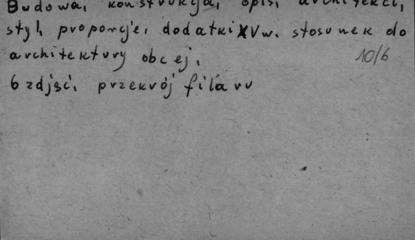 Budowa, konstrukcja, opis, architekci,
styl, proporcje, dodatki XV w. stosunek do
architektury obcej.
10/6
6 zdjęć, przekrój filaru